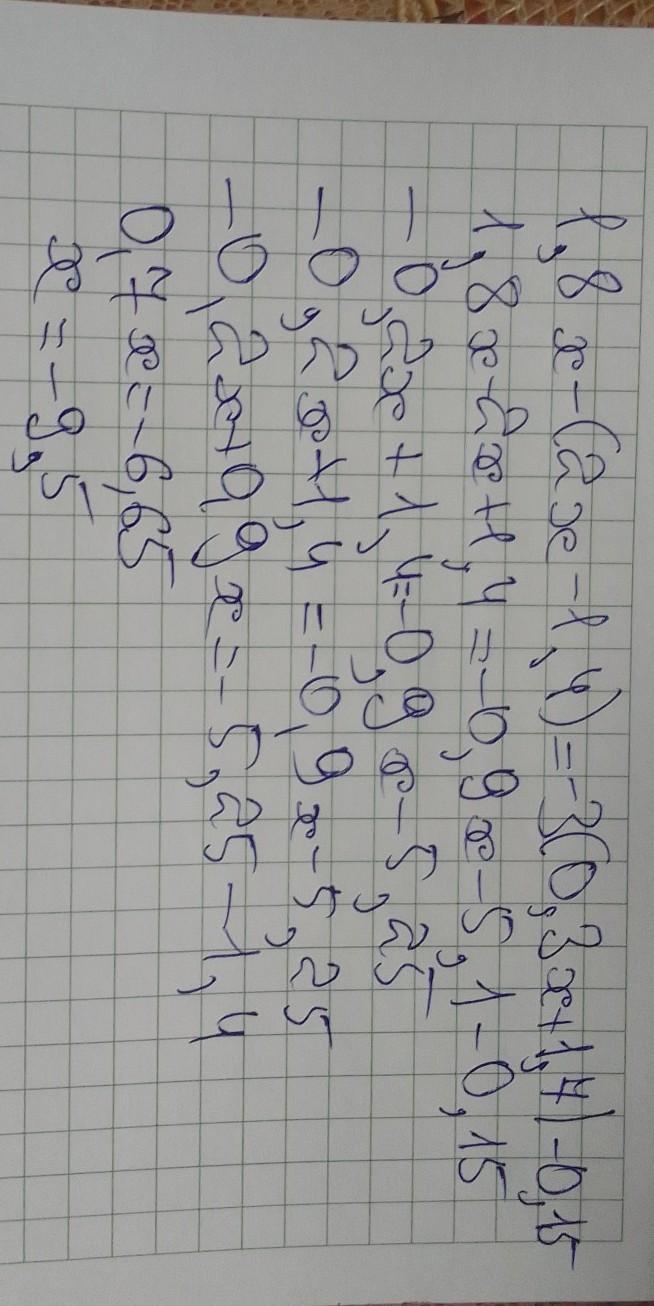 1,8x-(2x-1,4)=-3(0,3x+1,7)-0,15
1,8x-2x+1,4=-0,9x-5,1-0,15
-0,2x+1,4=-0,9x-5,25
-0,2x+1,4=-0,9x-5,25
-0,2x+0,9x=-5,25-1,4
0,7x=-6,65
x=-9,5